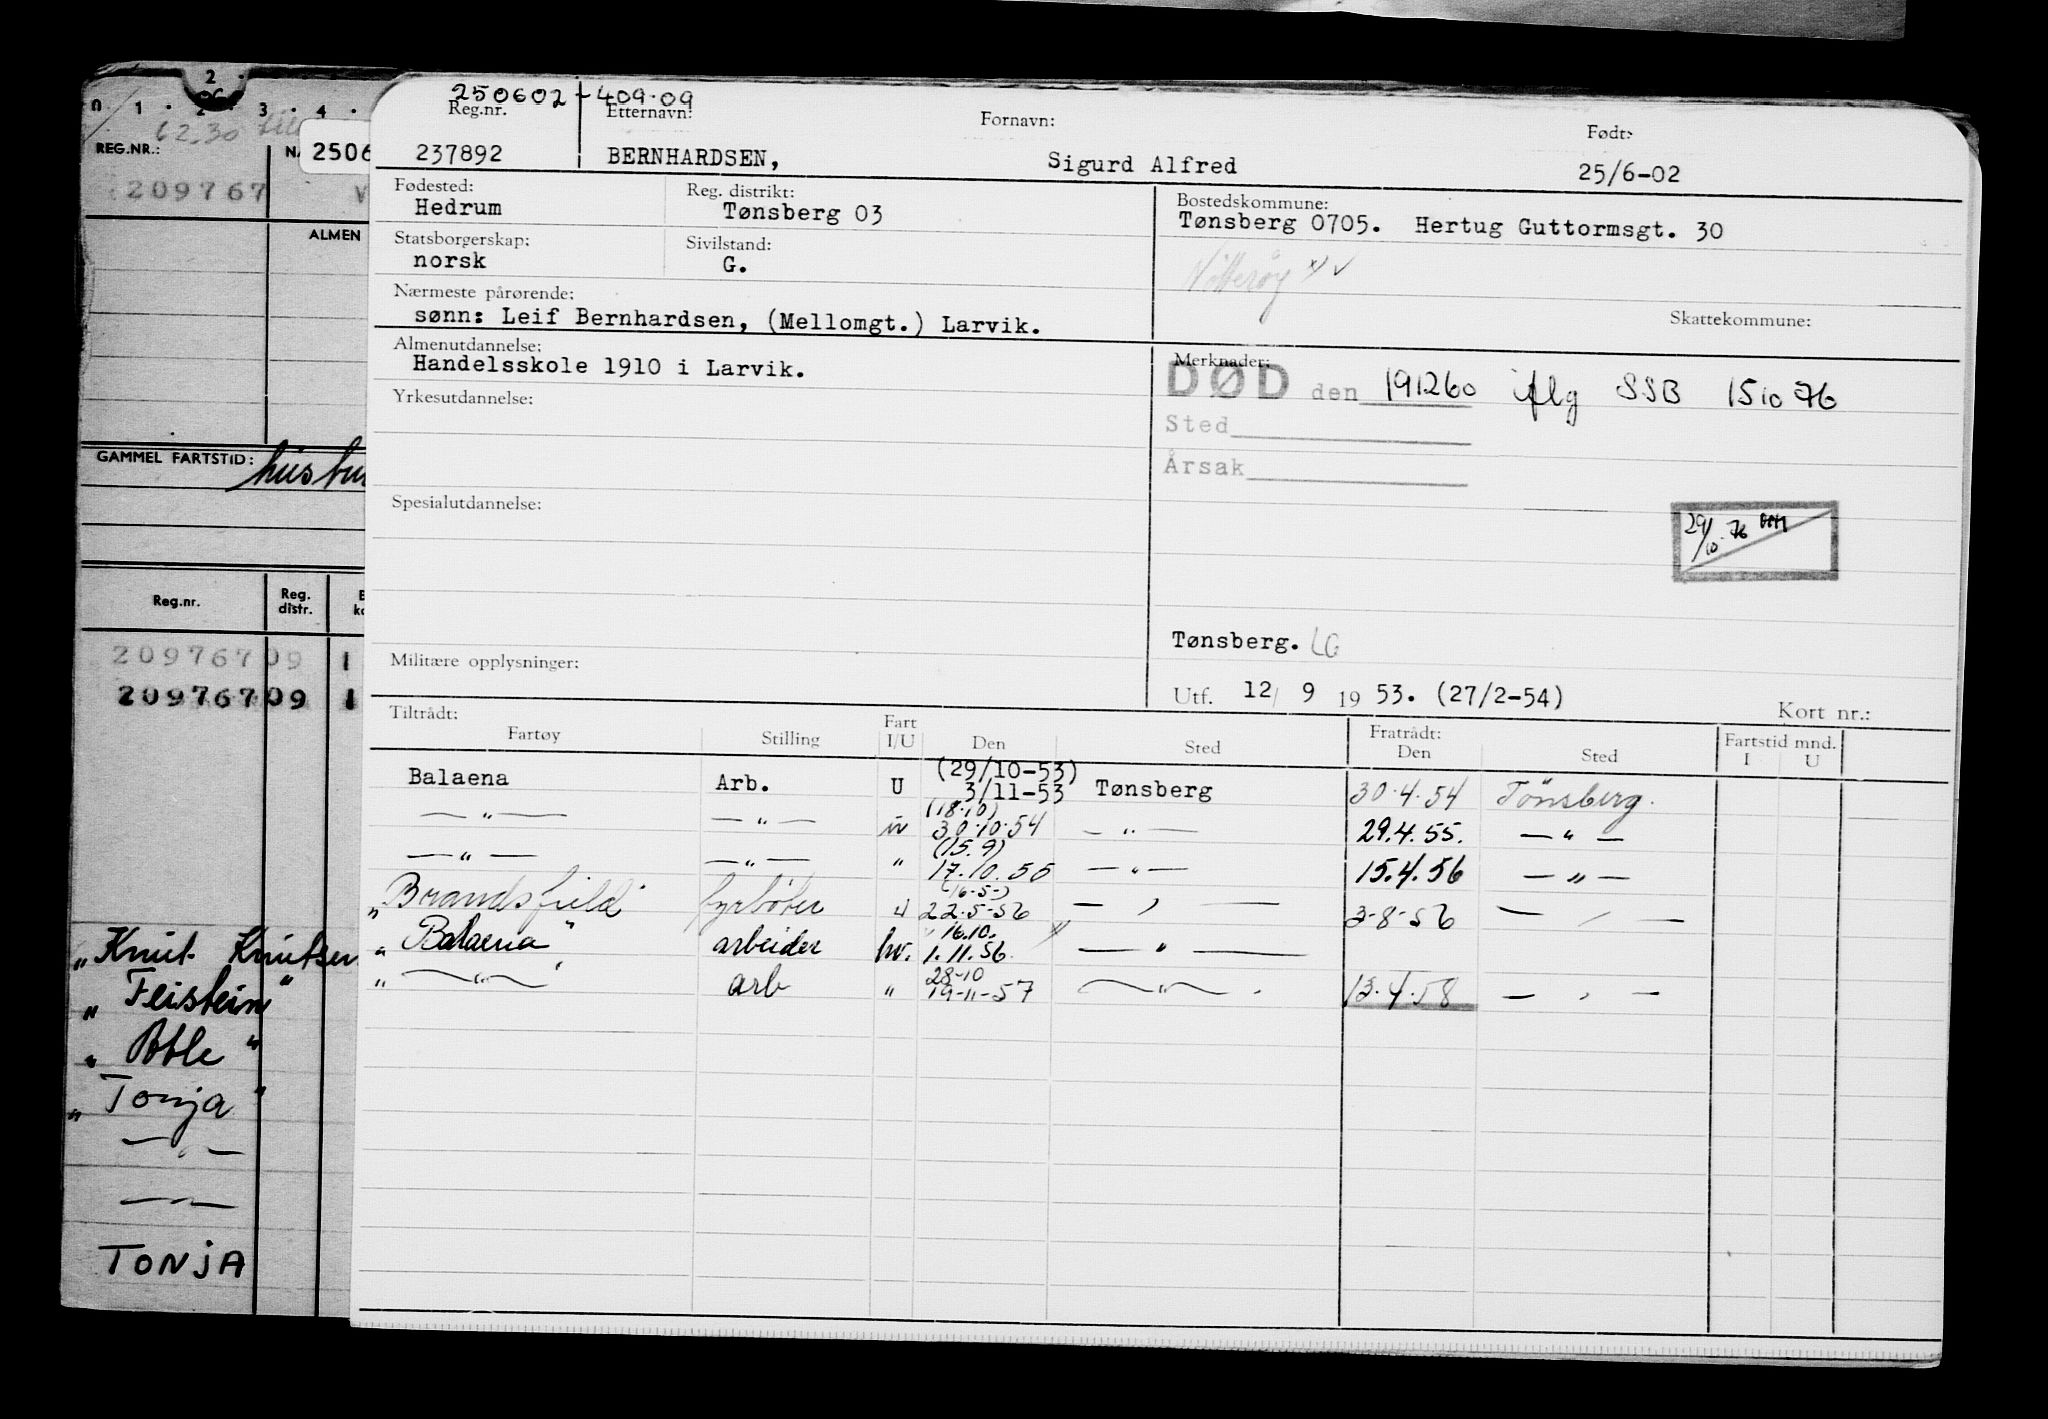 2
0 1 · 2 · 3 · 4 ·
REG.NR.:
2506
209767
ALMEN
GAMMEL FARTSTID:
Reg.nr. Reg. distr.
20976709 1
20976709 1
„Knut Knutsen
„Teistein"
„Atle"
„Tonja"
— „ —
— —
TONJA
250602-409.09
Reg.nr. Etternavn: Fornavn: Født:
237892 BERNHARDSEN, Sigurd Alfred 25/6-02
Fødested: Reg. distrikt: Bostedskommune:
Hedrum Tønsberg 03 Tønsberg 0705. Hertug Guttormsgt. 30
Statsborgerskap: Sivilstand:
norsk G. Nøtterøy x) ✓
Nærmeste pårørende:
sønn: Leif Bernhardsen, (Mellomgt.) Larvik. Skattekommune:
Almenutdannelse: Merknader:
Handelsskole 1910 i Larvik.
DØD den 191260 iflg SSB 151076
Yrkesutdannelse:
Sted
Årsak
Spesialutdannelse:
29/10-76
Tønsberg. LG
Militære opplysninger:
Utf. 12/ 9 19 53. (27/2-54) Kort nr.:
Tiltrådt: Fratrådt: Fartstid mnd.
Fartøy Stilling Fart I/U Den Sted Den Sted I U
Balaena Arb. U (29/10-53) 3/11-53 Tønsberg 30.4.54 Tönsberg.
— „ — — „ — (18.10) 30.10.54 — „ — 29.4.55. — „ —
— „ — — „ — „ (15.9) 17.10.55 — „ — 15.4.56 — „ —
„Brandsfield" fyrbøter (16-5-) 22-5-56 — „ — 3-8-56 — „ —
„Balaena" arbeider hv. 16.10. 1.11.56. x) — „ —
„ — „ — " arb „ 28-10 19-11-57 — „ — 13.4.58 — „ —